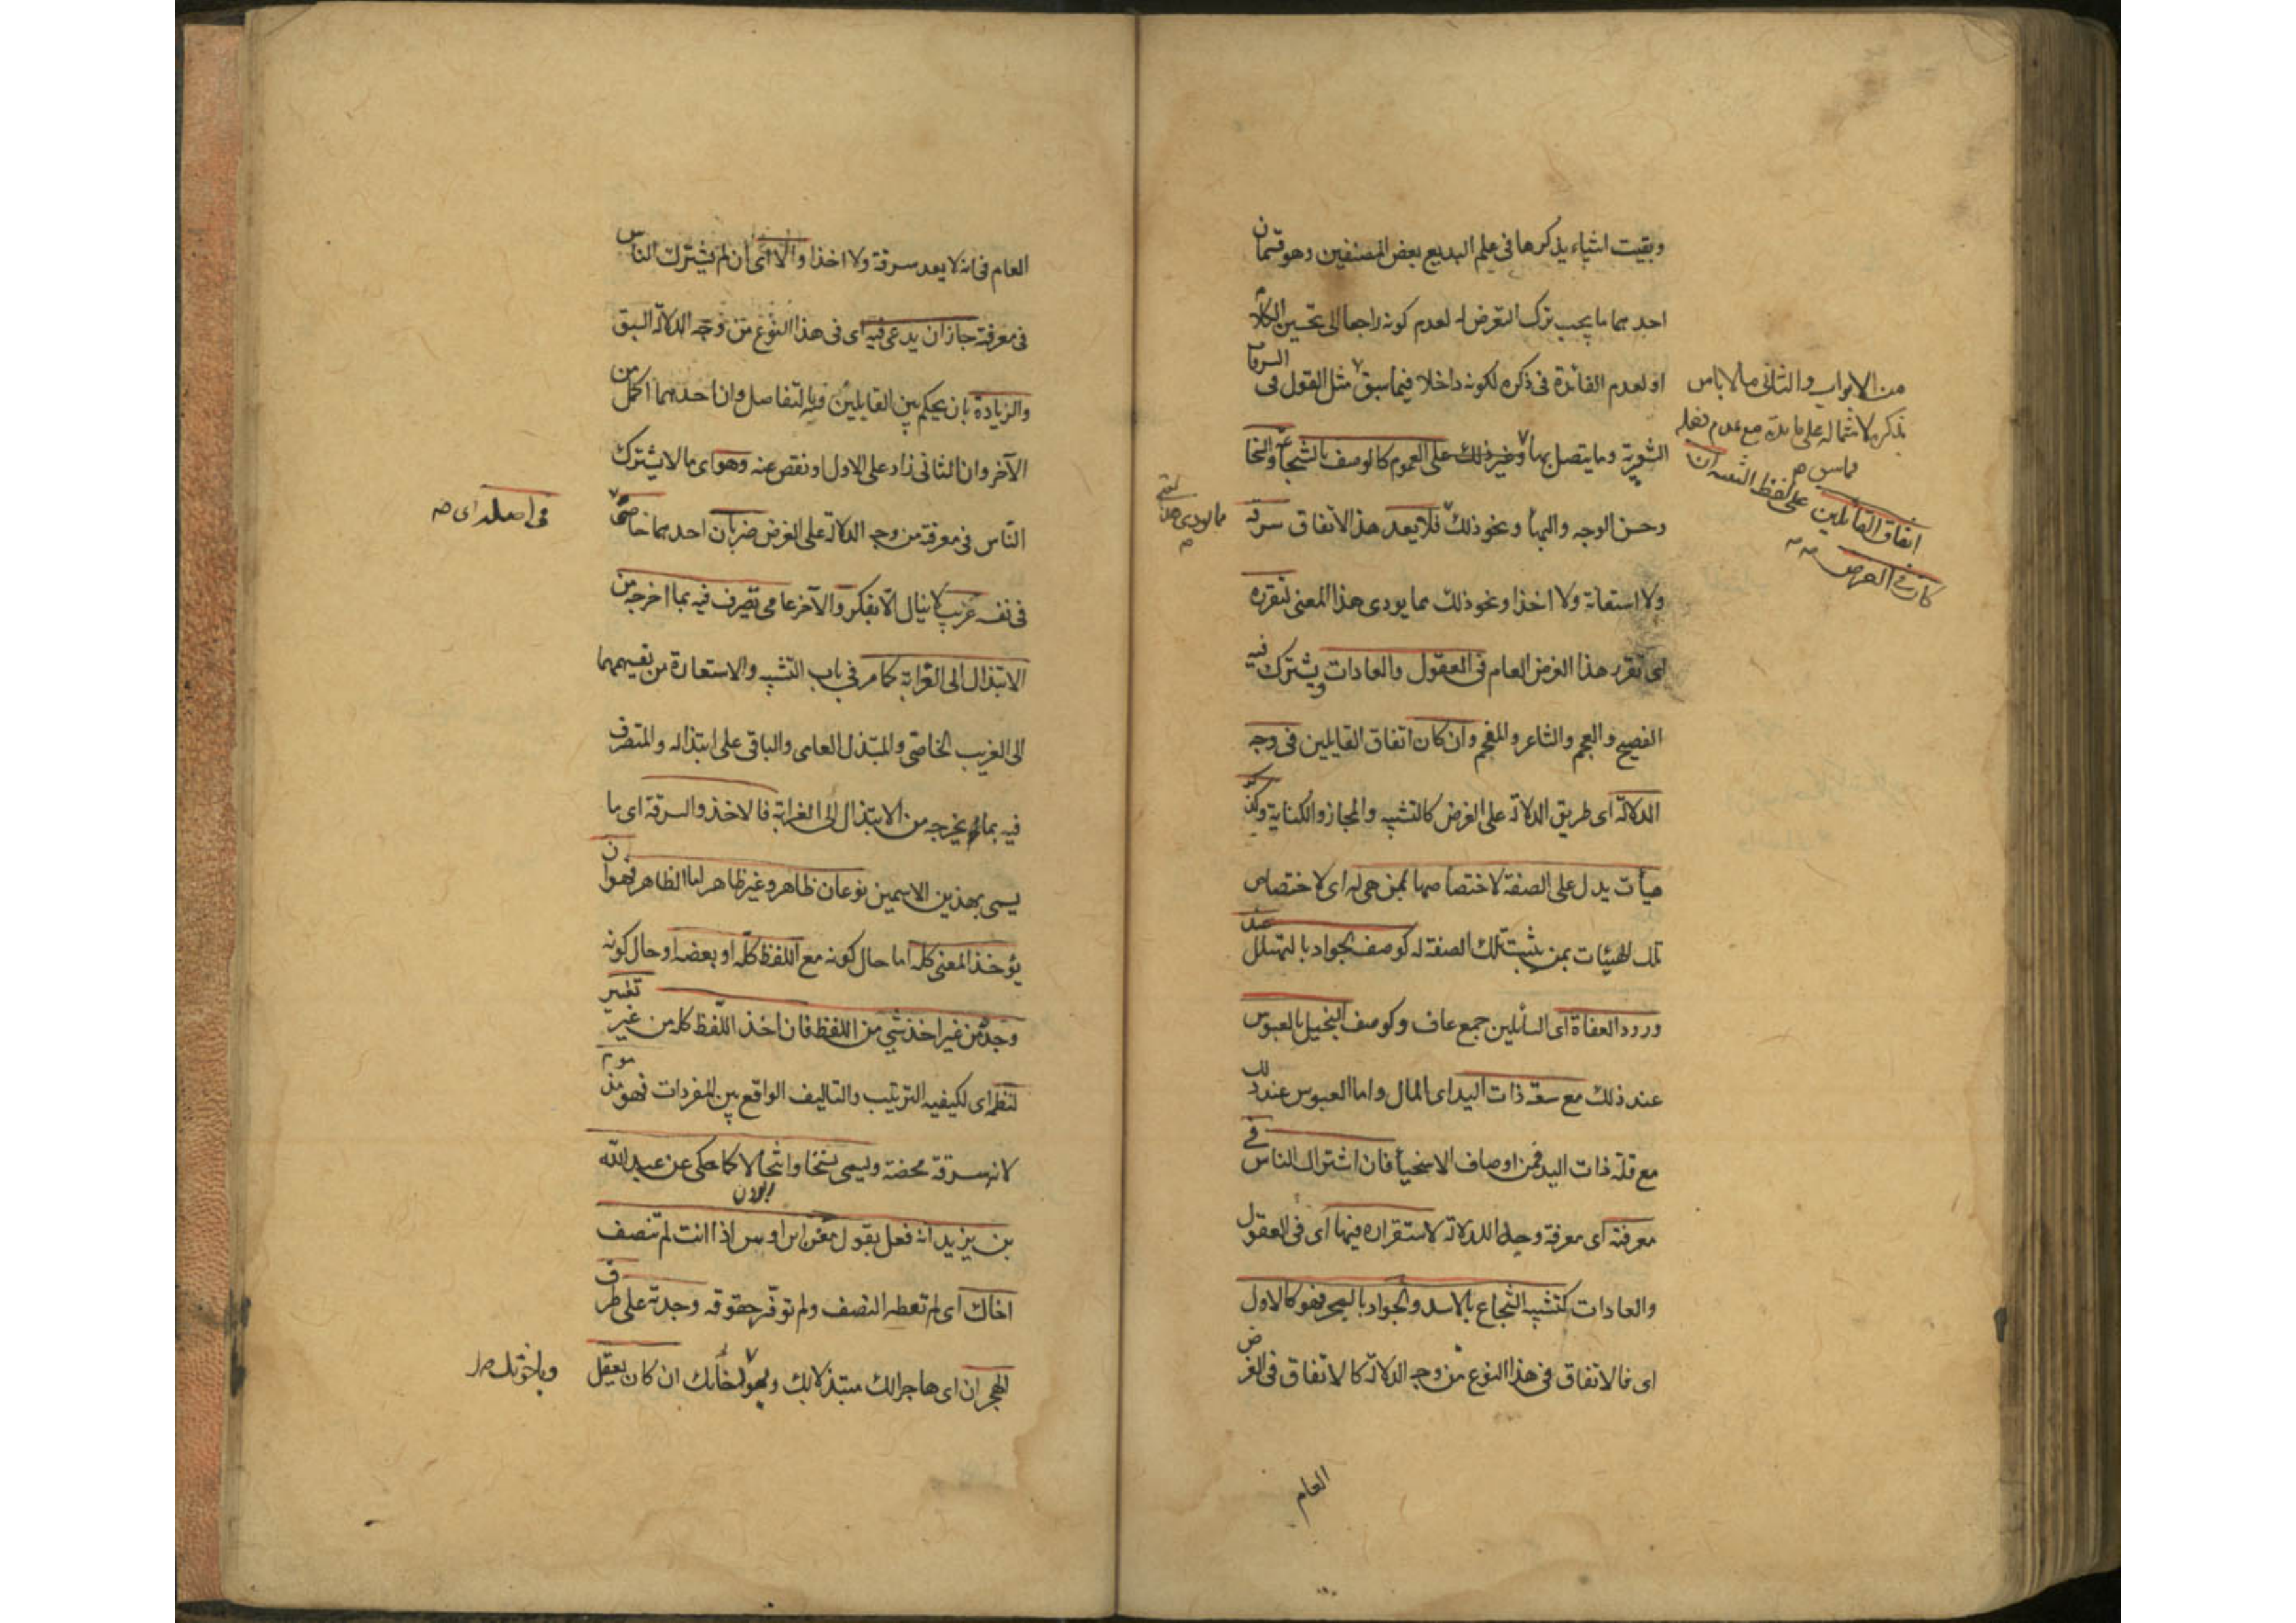 وبقيت اشياء يذكرها فى علم البديع بعض المصنفين وهو قسمان
احدهما ما يجب ترك التعرض له لعدم كونه راجعا الى تحسين الكلام
او لعدم الفائدة فى ذكره لكونه داخلا فيما سبق مثل القول فى السرقات
الشعرية وما يتصل بها وغير ذلك على العموم كالوصف بالشجاعة والسخا
وحسن الوجه والبها ونحو ذلك فلا يعد هذا الاتفاق سرقه
ولا استعانة ولا اخذا ونحو ذلك مما يودى هذا المعنى لتقرره
اى تقرر هذا الغرض العام فى العقول والعادات ويشترك فيه
الفصيح والعجم والشاعر والمفحم وان كان اتفاق القايلين فى وجه
الدلالة اى طريق الدلالة على الغرض كالتشبيه والمجاز والكناية وكذكر
هيأت يدل على الصفة لاختصاصها بمن هى له اى لاختصاص
تلك الهيئات بمن يثبت تلك الصفة له كوصف الجواد بالتهلل عند
ورود العفاة اى السائلين جمع عاف وكوصف البخيل بالعبوس
عند ذلك مع سعة ذات اليد اى المال واما العبوس عند ذلك
مع قلة ذات اليد فمن اوصاف الاسخيأ فان اشتراك الناس فى
معرفته اى معرفة وجه الدلالة لاستقراره فيها اى فى العقول
والعادات كتشبيه الشجاع بالاسد والجواد بالبحر فهو كالاول
اى فالاتفاق فى هذا النوع من وجه الدلالة كالاتفاق فى الغرض
العام
من الابواب والثانى ما لا باس
بذكره لاشتماله على فايدة مع عدم دخله
فما سبق
اتفاق القائلين على لفظ التثنيه ان
كان فى الغرض
العام فى انه لا يعد سرقة ولا اخذا والا اى ان لم يشترك الناس
فى معرفته جاز ان يدعى فيه اى فى هذا النوع من وجه الدلالة السبق
والزيادة بان يحكم بين القايلين فيه بالتفاصل وان احدهما اكمل من
الآخر وان الثانى زاد على الاول او نقص عنه وهو اى ما لا يشترك
النّاس فى معرفته من وجه الدلالة على الغرض ضربان احدهما خاصى
فى نفسه غريب لا ينال الا بفكر والآخر عامى تصرف فيه بما اخرجه من
الابتذال الى الغرابة كما مر فى باب التشبيه والاستعارة من تقسيمهما
الى الغريب الخاصى والمبتذل العامى والباقى على ابتذاله والمتصرف
فيه بما يخرجه من الابتذال الى الغرابة فالاخذ والسرقة اى ما
يسمى بهذين الاسمين نوعان ظاهر وغير ظاهر اما الظاهر فهو ان
يؤخذ المعنى كله اما حال كونه مع اللفظ كله او بعضه او حال كونه
وحده من غير اخذ شئ من اللفظ فان اخذ اللفظ كله من غير تغيير
لنظمه اى لكيفيه الترتيب والتاليف الواقع بين المفردات فهو مذموم
لانه سرقة محضة ويسمى نسخا وانتحالا كما حكى عن عبد الله
بن يزيد انه فعل بقول معن ابن اوس اذا انت لم تنصف
اخاك اى لم تعطه النصف ولم توفّر حقوقه وجدته على طرف
الهجران اى هاجرا لك مبتذلا بك وبهواخاتك ان كان يعقل
فى اصله اى
وباخوتك